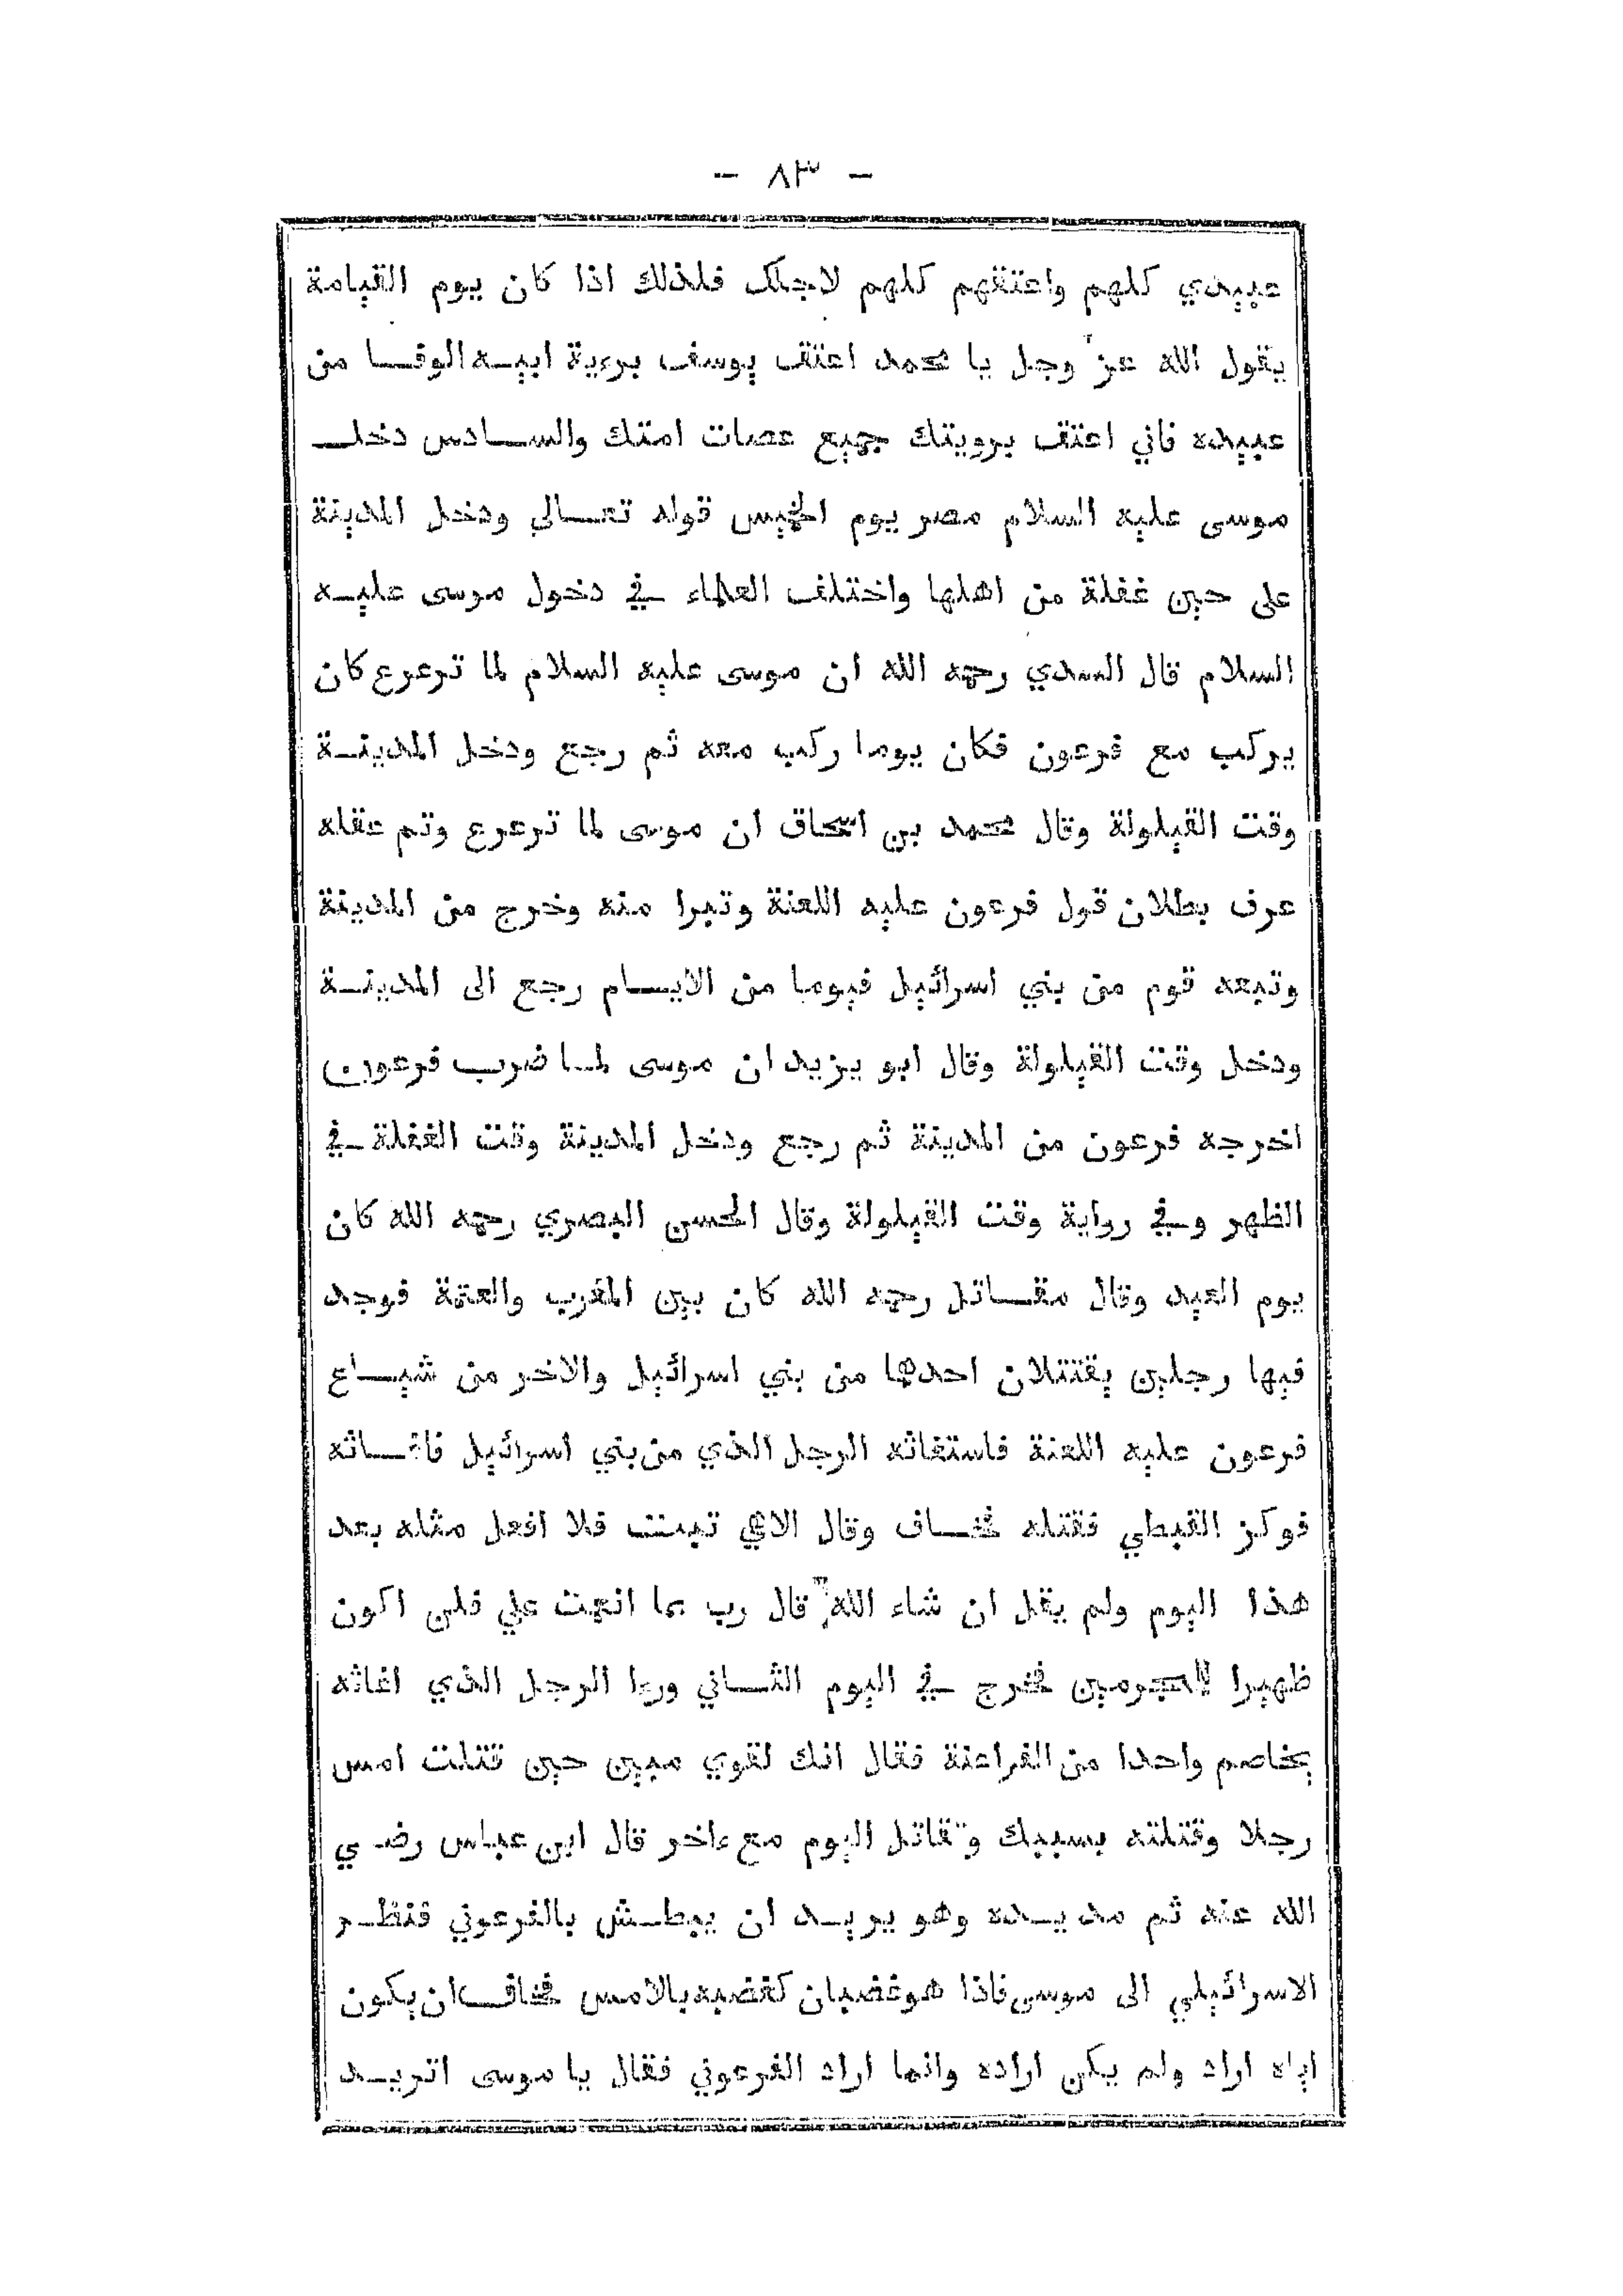 - ٨٣ -
عبيدي كلهم واعتقهم كلهم لاجلك فلذلك اذا كان يوم القيامة
يقول الله عز وجل يا محمد اعتق يوسف برءية ابيه الوفا من
عبيده فاني اعتق برويتك جميع عصات امتك والسادس دخل
موسى عليه السلام مصر يوم الخميس قوله تعالي ودخل المدينة
على حين غفلة من اهلها واختلف العلماء في دخول موسى عليه
السلام قال السدي رحمه الله ان موسى عليه السلام لما ترعرع كان
يركب مع فرعون فكان يوما ركب معه ثم رجع ودخل المدينة
وقت القيلولة وقال محمد بن اسحاق ان موسى لما ترعرع وتم عقله
عرف بطلان قول فرعون عليه اللعنة وتبرا منه وخرج من المدينة
وتبعه قوم من بني اسرائيل فيوما من الايام رجع الى المدينة
ودخل وقت القيلولة وقال ابو يزيد ان موسى لما ضرب فرعون
اخرجه فرعون من المدينة ثم رجع ودخل المدينة وقت الغفلة في
الظهر وفي رواية وقت القيلولة وقال الحسن البصري رحمه الله كان
يوم العيد وقال مقاتل رحمه الله كان بين المغرب والعتمة فوجد
فيها رجلين يقتتلان احدهما من بني اسرائيل والاخر من شياع
فرعون عليه اللعنة فاستغاثه الرجل الذي من بني اسرائيل فاغاثه
فوكز القبطي فقتله فخاف وقال الاهي تبت فلا افعل مثله بعد
هذا اليوم ولم يقل ان شاء الله قال رب بما انعمت علي فلن اكون
ظهيرا للمجرمين فخرج في اليوم الثاني ورءا الرجل الذي اغاثه
يخاصم واحدا من الفراعنة فقال انك لقوي مبين حين قتلت امس
رجلا وقتلته بسببك وتقاتل اليوم مع ءاخر قال ابن عباس رضي
الله عنه ثم مد يده وهو يريد ان يبطش بالفرعوني فنظر
الاسرائيلي الى موسى فاذا هو غضبان كغضبه بالامس فخاف ان يكون
اياه اراد ولم يكن اراده وانما اراد الفرعوني فقال يا موسى اتريد